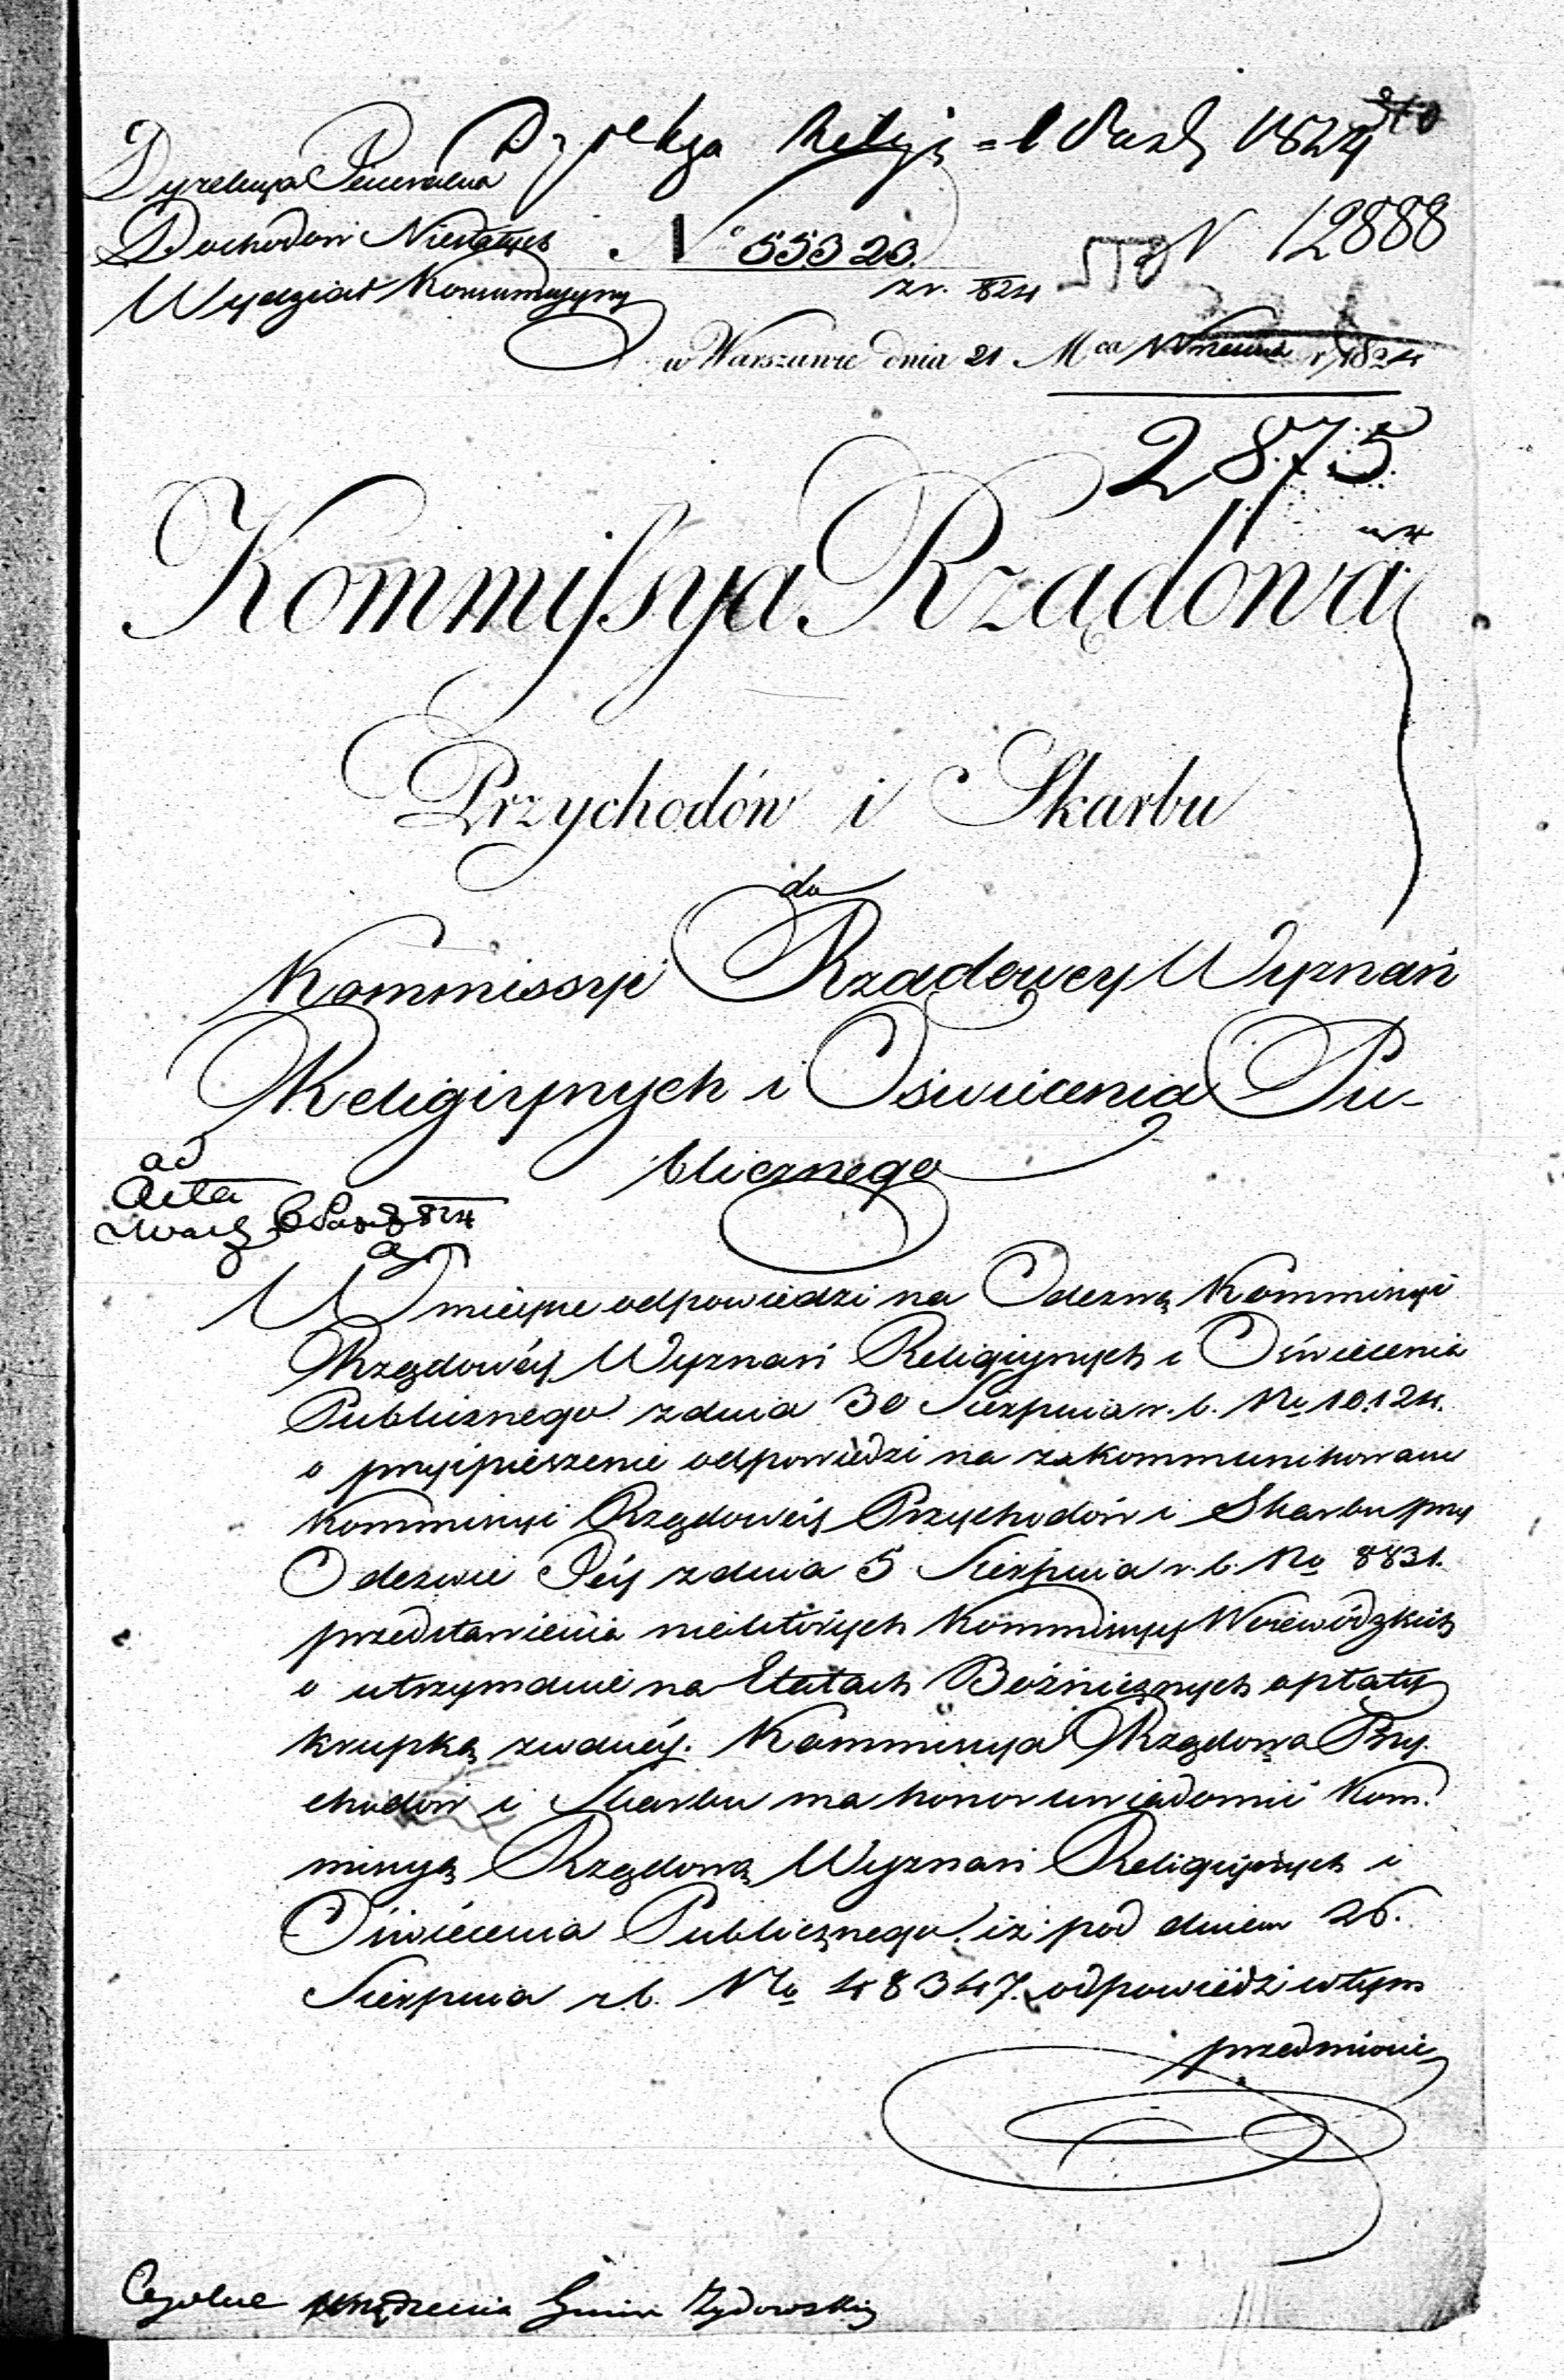 Dyrekcya Religij = 1 Paźd 1824
Dyrekcya Generalna
Dochodow Niestałych
Wydział Konsumcyjny
No 55323.
zr. 824
N 12888
w Warszawie dnia 21 Mca Września r. 1824
2875
Kommissya Rządowa
Przychodów i Skarbu
do
Kommissyi Rządowey Wyznań
Religiynych i Oświecenia Pu-
blicznego
ad
Acta
W mieysce odpowiedzi na Odezwę Kommissyi
Rządowéy Wyznań Religiynych i Oświecenia
Publicznego z dnia 30 Sierpnia r. b. No 10124.
o przyspieszenie odpowiedzi na zakommunikowane
Kommissyi Rządowéy Przychodów i Skarbu przy
Odezwie Jéy z dnia 5 Sierpnia r. b. No 8831.
przedstawienia niektórych Kommissyy Woiewódzkich
o utrzymanie na Etatach Bóżniczných opłaty
krupką zwanéy. Kommissya Rządowa Przy-
chodów i Skarbu ma honor uwiadomić Kom-
missyą Rządową Wyznań Religiynych i
Oświecenia Publicznego, iż pod dniem 26.
Sierpnia r. b. No 48347. odpowiedź w tym
przedmiocie
urządzenia Gmin Żydowskich